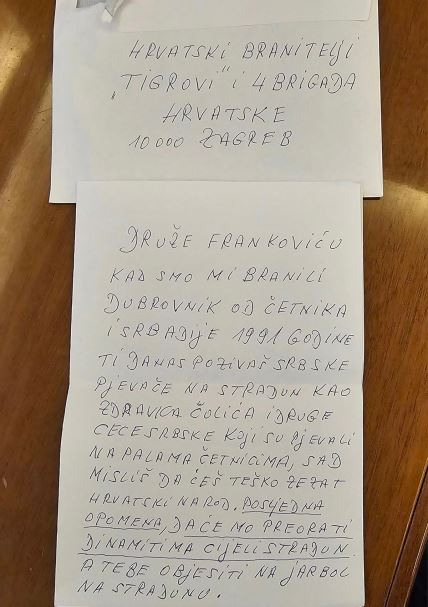 HRVATSKI BRANITELJI
„TIGROVI" I 4 BRIGADA
HRVATSKE
10000 ZAGREB
DRUŽE FRANKOVIĆU
KAD SMO MI BRANILI
DUBROVNIK OD ČETNIKA
I SRBADIJE 1991 GODINE
TI DANAS POZIVAŠ SRBSKE
PJEVAČE NA STRADUN KAO
ZDRAVKA ČOLIĆA I DRUGE
CECE SRBSKE KOJI SU PJEVALI
NA PALAMA ČETNICIMA, SAD
MISLIŠ DA ĆEŠ TEŠKO ZEZAT
HRVATSKI NAROD. POSLJEDNA
OPOMENA, DA ĆE MO PREORATI
DINAMITIMA CIJELI STRADUN.
A TEBE OBJESITI NA JARBOL
NA STRADUNU.